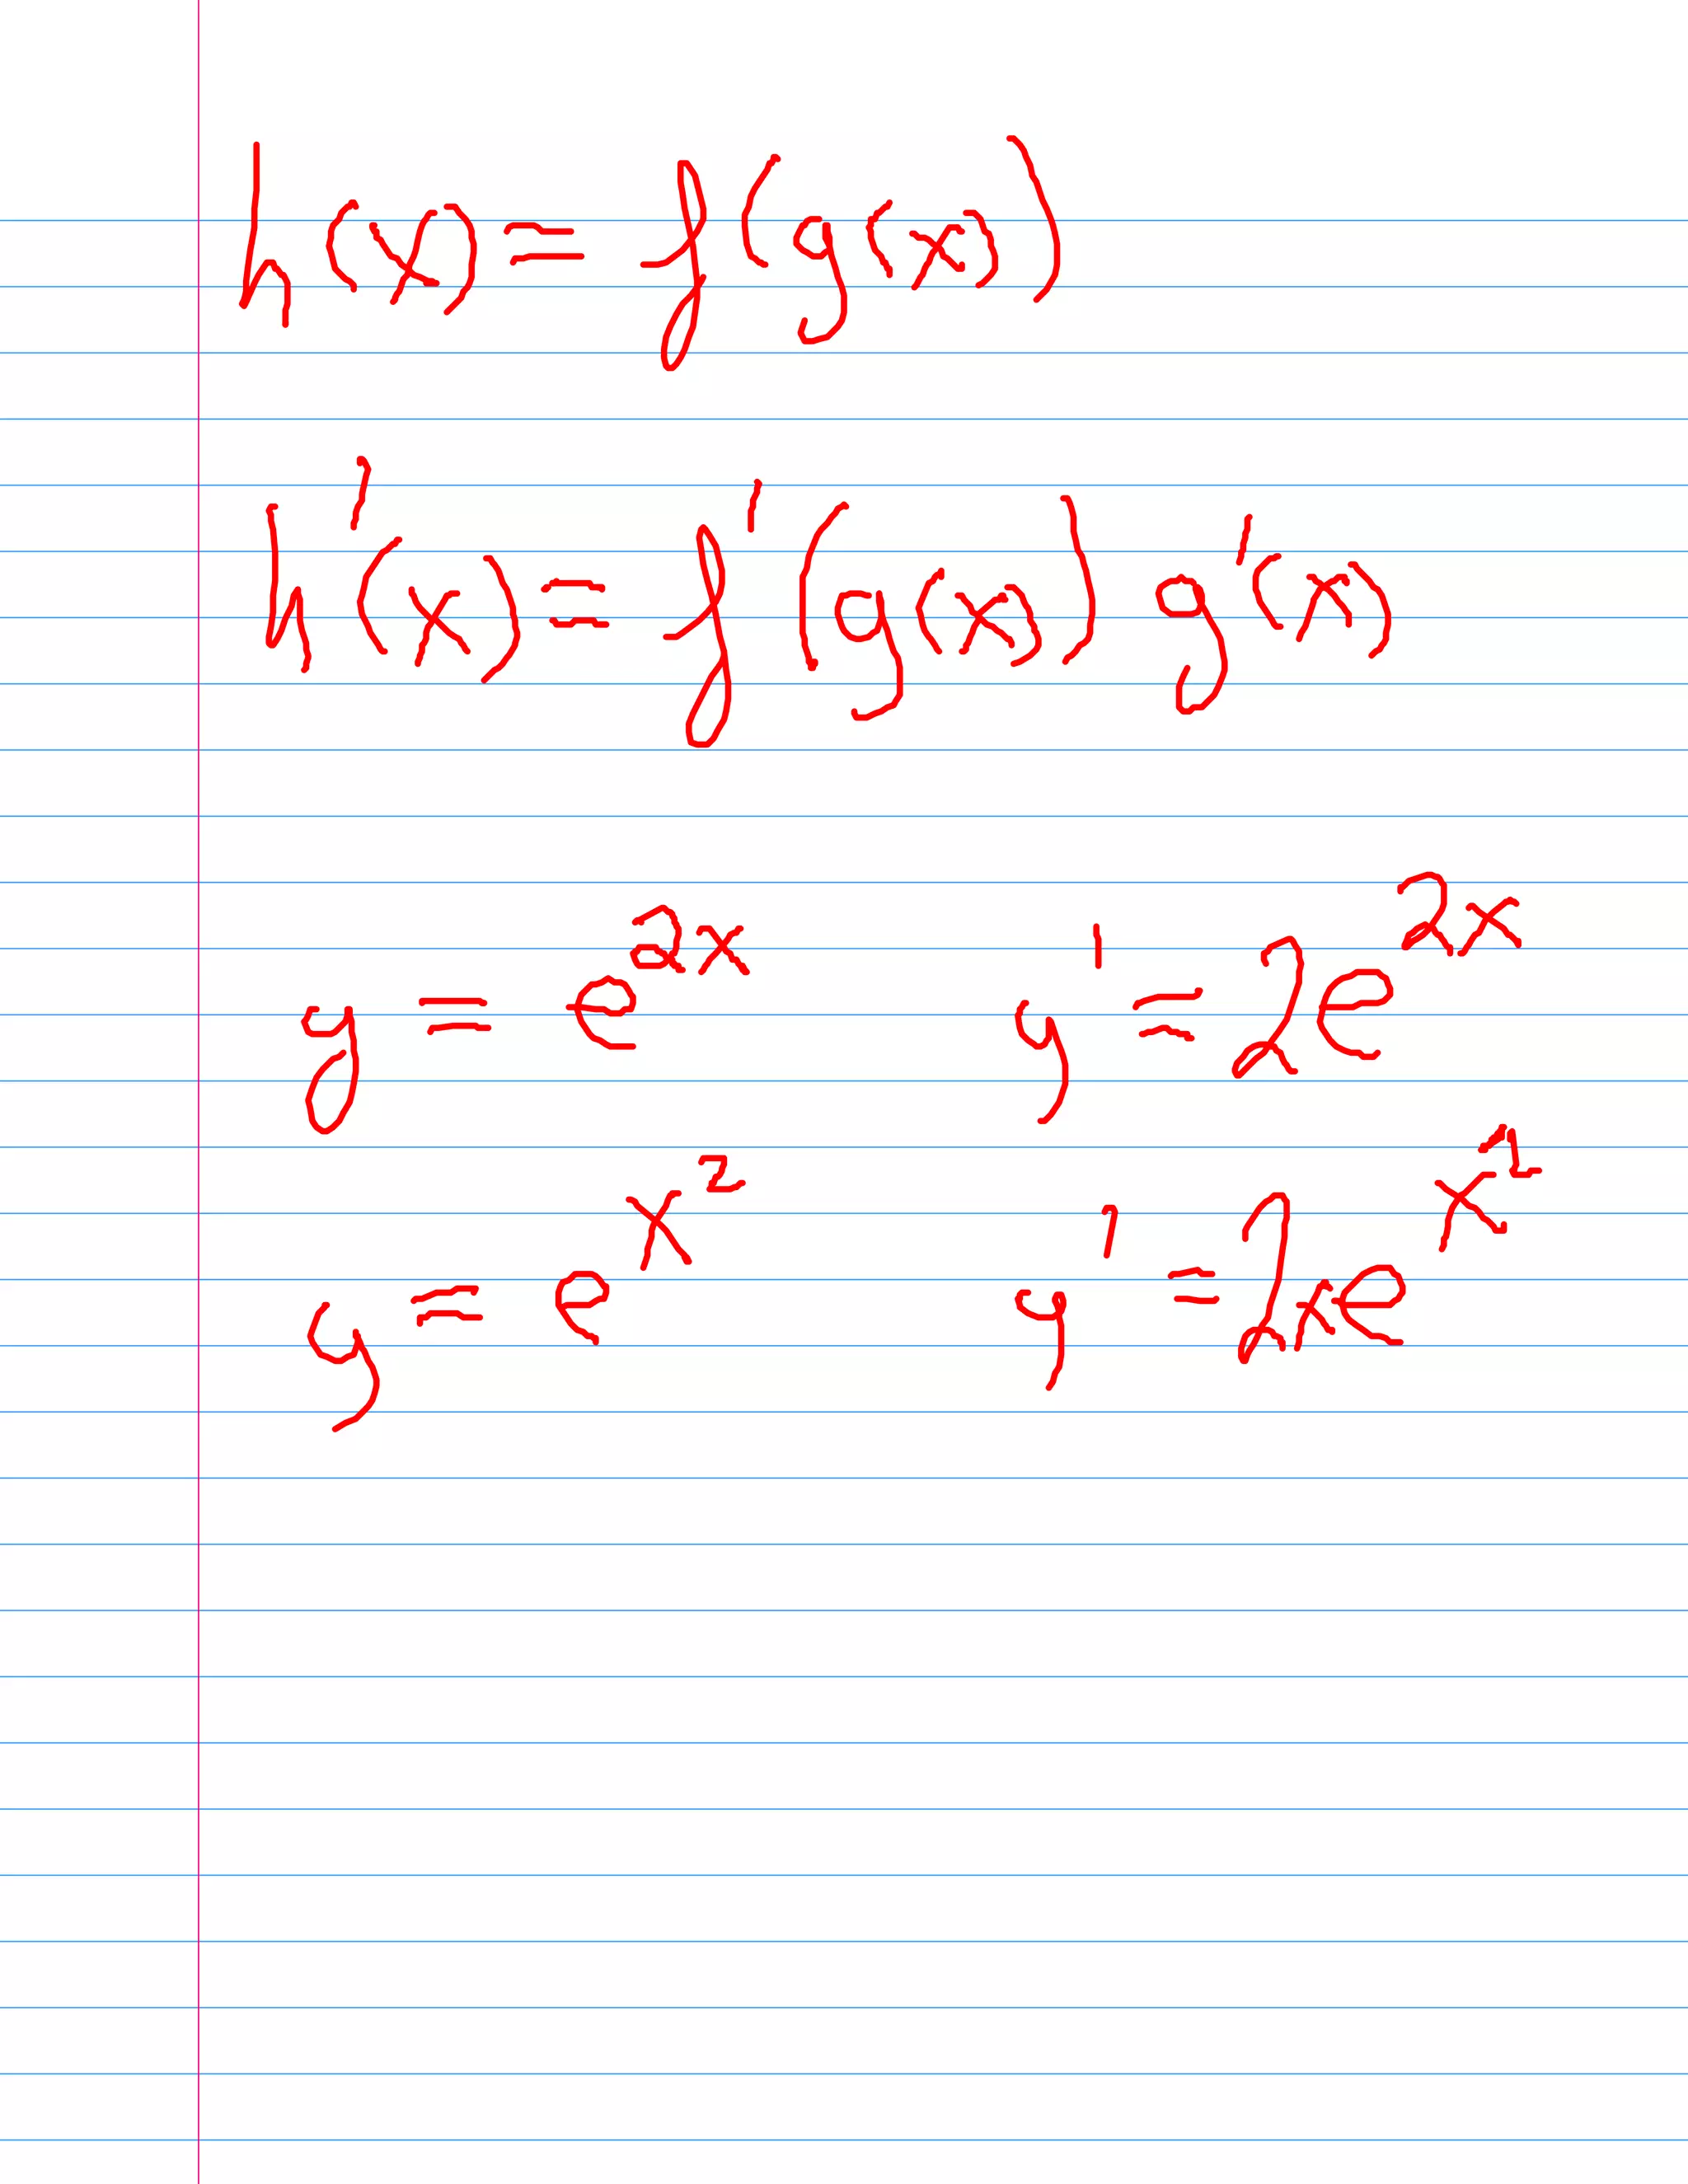 h(x) = f(g(x))
h'(x) = f'(g(x)) g'(x)
y = e^{2x} y' = 2e^{2x}
y = e^{x^2} y' = 2xe^{x^2}